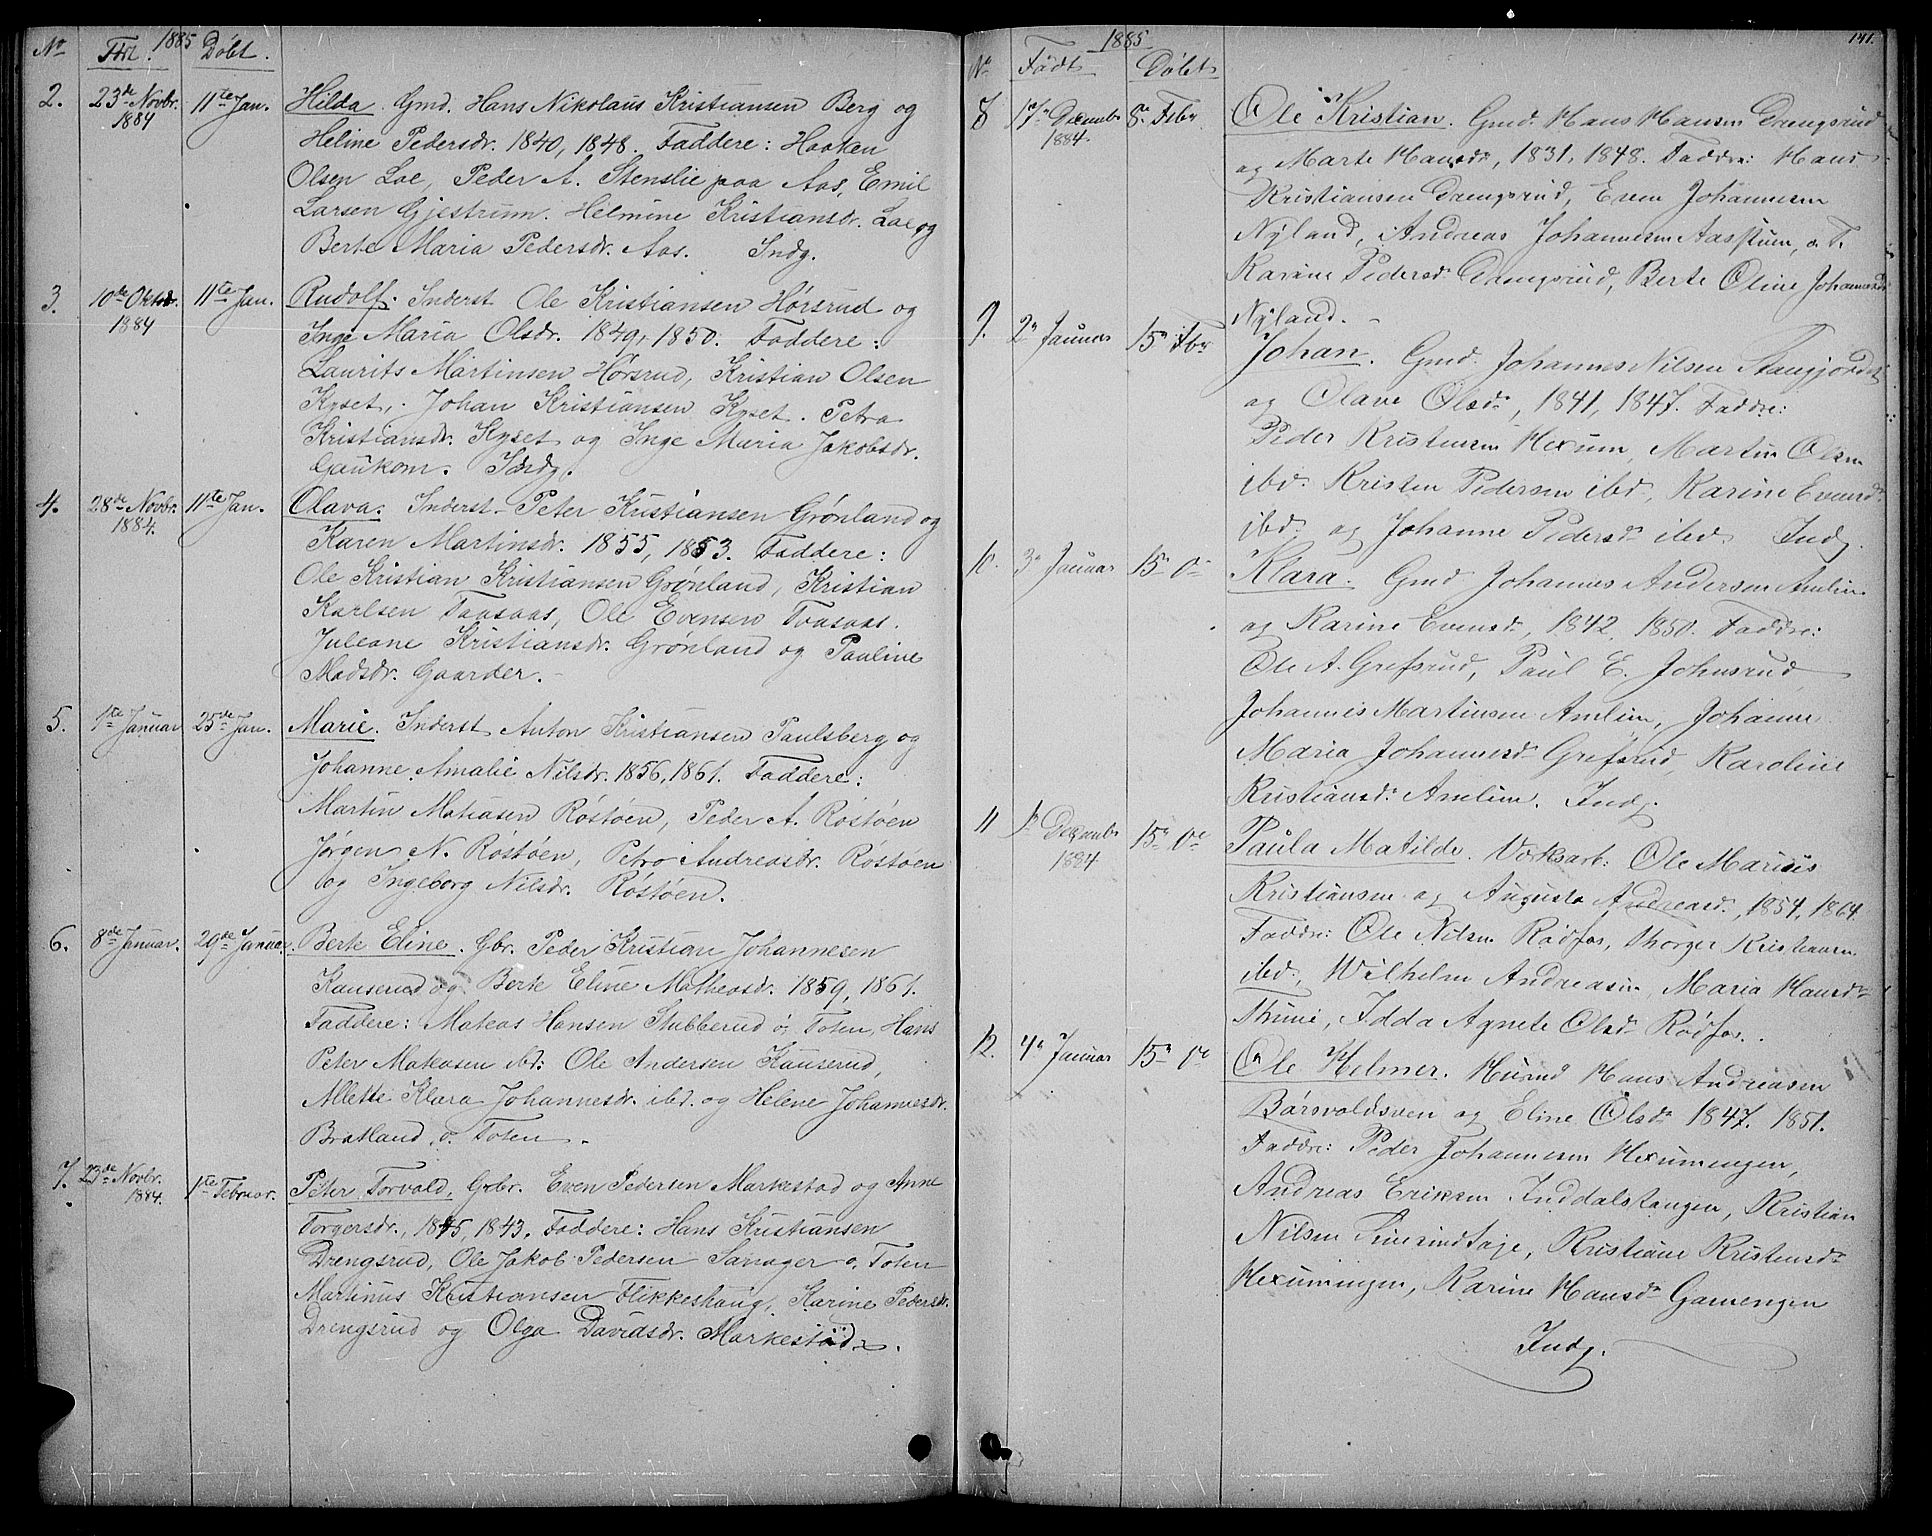 1885
No Født. Døbt.
2. 23de Novbr. 1884 11te Jan. Hilda. Gmd. Hans Nikolaus Kristiansen Berg og
Heline Pedersdr. 1840, 1848. Faddere: Haaken
Olsen Loe, Peder A. Stenslie paa Aas, Emil
Larsen Gjestrum. Helmine Kristiansdr. Loe og
Berte Maria Pedersdr. Aas. Indg.
3. 10de Oktbr. 1884 11te Jan. Rudolf. Inderst Ole Kristiansen Hørsrud og
Inge Maria Olsdr. 1849, 1850. Faddere:
Laurits Martinsen Hørsrud, Kristian Olsen
Kyset, Johan Kristiansen Kyset. Petra
Kristiansdr. Kyset og Inge Maria Jakobsdr.
Gaukom. Indg.
4. 28de Novbr. 1884. 11te Jan. Olava. Inderst Peter Kristiansen Grønland og
Karen Martinsdr. 1855, 1853. Faddere:
Ole Kristian Kristiansen Grønland, Kristian
Karlsen Taasaas, Ole Evensen Traasaas.
Juleane Kristiansdr. Grønland og Pauline
Madsdr. Gaarder.
5. 1te Januar 25de Jan. Marie. Inderst Anton Kristiansen Paulsberg og
Johanne Amalie Nilsdr. 1856, 1861. Faddere:
Martin Matiasen Røstøen, Peder A. Røstøen
Jørgen N. Røstøen, Petra Andreasdr. Røstøen
og Ingeborg Nilsdr. Røstøen.
6. 8de Januar. 29de Januar. Berte Eline. Gbr. Peder Kristian Johannesen
Kauserud og Berte Eline Matheasdr. 1859, 1861.
Faddere: Mateas Hansen Stubberud ø. Toten, Hans
Peter Mateasen ibd: Ole Andersen Kauserud,
Allette Klara Johannesdr. ibd. og Helene Johannesdr.
Bratland, ø. Toten.
7. 23de Novbr. 1884. 1te Februar. Peter Torvald. Gbr. Even Pedersen Markestad og Anne
Torgersdr., 1845, 1843. Faddere: Hans Kristiansen
Drengsrud, Ole Jakob Pedersen Sanager ø. Toten
Martinus Kristiansen Flikkeshaug, Karine Pedersdr.
Drengsrud og Olga Davidsdr. Markestad.
141.
1885.
No Født Døbt
8 17de Decembr 1884. 8de Febr Ole Kristian. Gmd. Hans Hansen Drengsrud
og Marte Hansdr, 1831, 1848. Faddre: Hans
Kristiansen Drengsrud, Even Johannesen
Nyland, Andreas Johannesen Aasstuen, ø. T.
Karine Pedersdr Drengsrud, Berte Oline Johannesdr
Nyland.
9. 2de Januar 15de Fbr Johan. Gmd. Johannes Nilsen
og Olave Olsdr, 1841, 1847. Faddre:
Peder Kristensen Hexum, Martin Olsen
ibd. Kristen Pedersen ibd, Karine Evensdr
ibd. og Johanne Pedersdr ibd Indg.
10. 3de Januar 15de Do Klara. Gmd Johannes Andersen Amlien
og Karine Evensdr, 1842, 1850. Faddre:
Ole A. Grefsrud, Paul E. Johnsrud
Johannes Martinsen Amlien, Johanne
Maria Johannesdr Grefsrud, Karoline
Kristiansdr Amlien. Indg.
11 1de Decembr 1884 15de Do Paula Matilde. Værksarb: Ole Marius
Kristiansen og Augusta Andreasdr, 1854, 1864.
Faddre: Ole Nilsen Rødfos, Thorger Kristiansen
ibd, Wilhelm Andreasen, Maria Hansdr
Thune, Idda Agnete Olsdr Rødfos.
12. 4de Januar 15de Do Ole Helmer. Husmd Hans Andreasen
Børsvoldsven og Eline Olsdr 1847. 1851.
Faddre: Peder Johannesen Hexumengen,
Andreas Eriksen Inddalstangen, Kristian
Nilsen, Kristiane Kristensdr
Hexumengen, Karine Hansdr Gamengen
Indg.